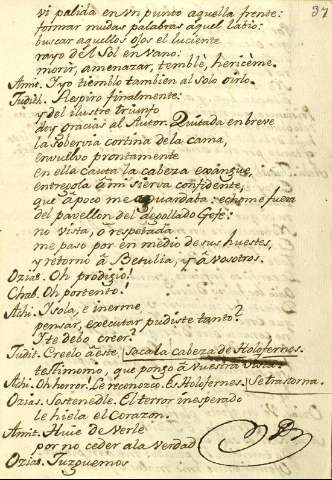 37
vi palida en un punto aquella frente:
formar mudas palabras aquel labio:
buscar aquellos ojos el luciente
rayo del Sol en vano:
morir, amenazar, temblé, heríceme.
Amit. I yo tiemblo tambien al solo oírlo.
Judit. Respiro finalmente:
y del ilustre triunfo
doy gracias al Autor. Quitada en breve
la sobervia cortina de la cama,
envuelvo prontamente
en ella cauta la cabeza exangüe,
entregola â mi sierva confidente,
que â poco me aguardaba: echome fuera
del pavellon del degollado Gefe:
no vista, ô respetada
me paso por en medio de sus huestes,
y retorno â Betulia, y â vosotros.
Ozias. Oh prodigio!
Chab. Oh portento!
Achi. I sola, e inerme
pensar, executar pudiste tanto?
I te debo creer?
Judit. Creelo â éste. | Saca la cabeza de Holofernes.
testimonio, que pongo â vuestra vista.
Achi. Oh horror. Le reconozco. Es Holofernes. | Se trastorna.
Ozias. Sostenedle. El terror inesperado
le hiela el Corazon.
Amit. Huie de verle
por no ceder a la verdad
Ozias. Juzguemos